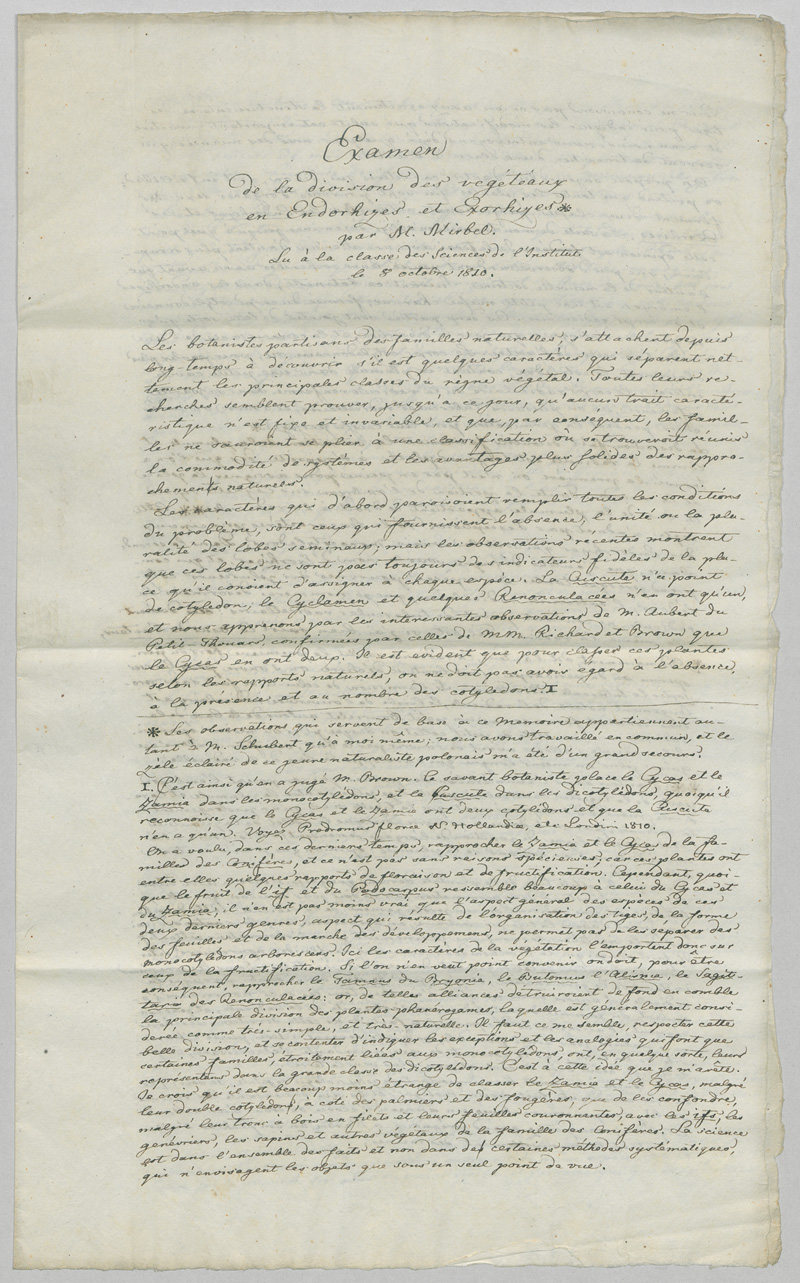 Examen
de la division des végéteaux
en Endorhizes et Exorhizes*
par M. Mirbel.
Lu à la classe des Sciences de l'Institut
le 8 octobre 1810.
Les botanistes partisans des familles naturelles, s'attachent depuis
long-temps à découvrir s'il est quelques caractères qui séparent net-
tement les principales classes du règne végétal. Toutes leurs re-
cherches semblent prouver, jusqu'à ce jour, qu'aucun trait caracté-
ristique n'est fixe et invariable, et que, par conséquent, les famil-
les ne sauroient se plier à une classification où se trouveroit réunis
la commodité de systémes et les avantages plus solides des rappro-
chements naturels.
Les caractères qui d'abord paroisoient remplir toutes les conditions
du problême, sont ceux qui fournissent l'absence, l'unité ou la plu-
ralité des lobes seminaux; mais les observations récentes montrent
que ces lobes ne sont pas toujours des indicateurs fidèles de la pla-
ce qu'il convient d'assigner à chaque espèce. La Cuscute n'a point
de cotylédon; le Cyclamen et quelques Renonculacées n'en ont qu'un,
et nous apprenons par les interessantes observations de M. Aubert du
Petit-Thouars, confirmées par celles de MM. Richard et Brown que
le Cycas en ont deux. Il est evident que pour classer ces plantes
selon les rapports naturels, on ne doit pas avoir égard à l'absence,
à la présence et au nombre des cotylédons. I
* Les observations qui servent de base à ce Memoire appartiennent au-
tant à M. Schubert qu'à moi même; nous avons travaillé en commun, et le
zèle éclairé de ce jeune naturaliste polonais m'a été d'un grand secours.
I. C'est ainsi qu'en a jugé M. Brown. Ce savant botaniste place le Cycas et le
Zamia dans les monocotylédons, et la Cuscute dans les dicotylédons, quoiqu'il
reconnoisse que le Cycas et le Zamia ont deux cotylédons et que la Cuscute
n'en a qu'un. Voyez Prodromus floræ N. Hollandiæ, etc Londini 1810.
On a voulu, dans ces derniers temps, rapprocher le Zamia et le Cycas de la fa-
mille des Conifères, et ce n'est pas sans raisons spécieuses, car ces plantes ont
entre elles quelques rapports de floraison et de fructification. Cependant, quoi-
que le fruit de l'if et du Podocarpus ressemble beaucoup à celui du Cycas et
du Zamia, il n'en est pas moins vrai que l'aspect général des espèces de ces
deux derniers genres, aspect qui résulte de l'organisation des tiges, de la forme
des feuilles et de la marche des développemens, ne permet pas de les separer des
monocotylédons arborescens. Ici les caractères de la végétation l'emportent donc sur
ceux de la fructification. Si l'on n'en veut point convenir on doit, pour être
conséquent, rapprocher le Tamnus du Bryonia, le Butomus l'Alisma, le Sagit-
taria des Renonculacées: or, de telles alliances détruiroient de fond en comble
la principale division des plantes phanerogames, laquelle est généralement consi-
derée comme très-simple, et très-naturelle. Il faut ce me semble, respecter cette
belle division, et se contenter d'indiquer les exceptions et les analogies qui font que
certaines familles, étroitement liées aux monocotylédons, ont, en quelque sorte, leurs
représentans dans la grande classe des dicotylédons. C'est à cette idée que je m'arrête.
Je crois qu'il est beaucoup moins étrange de classer le Zamia et le Cycas, malgré
leur double cotylédon, à coté des palmiers et des fougères, que de les confondre,
malgré leur tronc à bois en filets et leurs feuilles couronnantes, avec les ifs, les
genévriers, les sapins et autres végétaux de la famille des Conifères. La science
est dans l'ensemble des faits et non dans de certaines méthodes systématiques,
qui n'envisagent les objets que sous un seul point de vue.